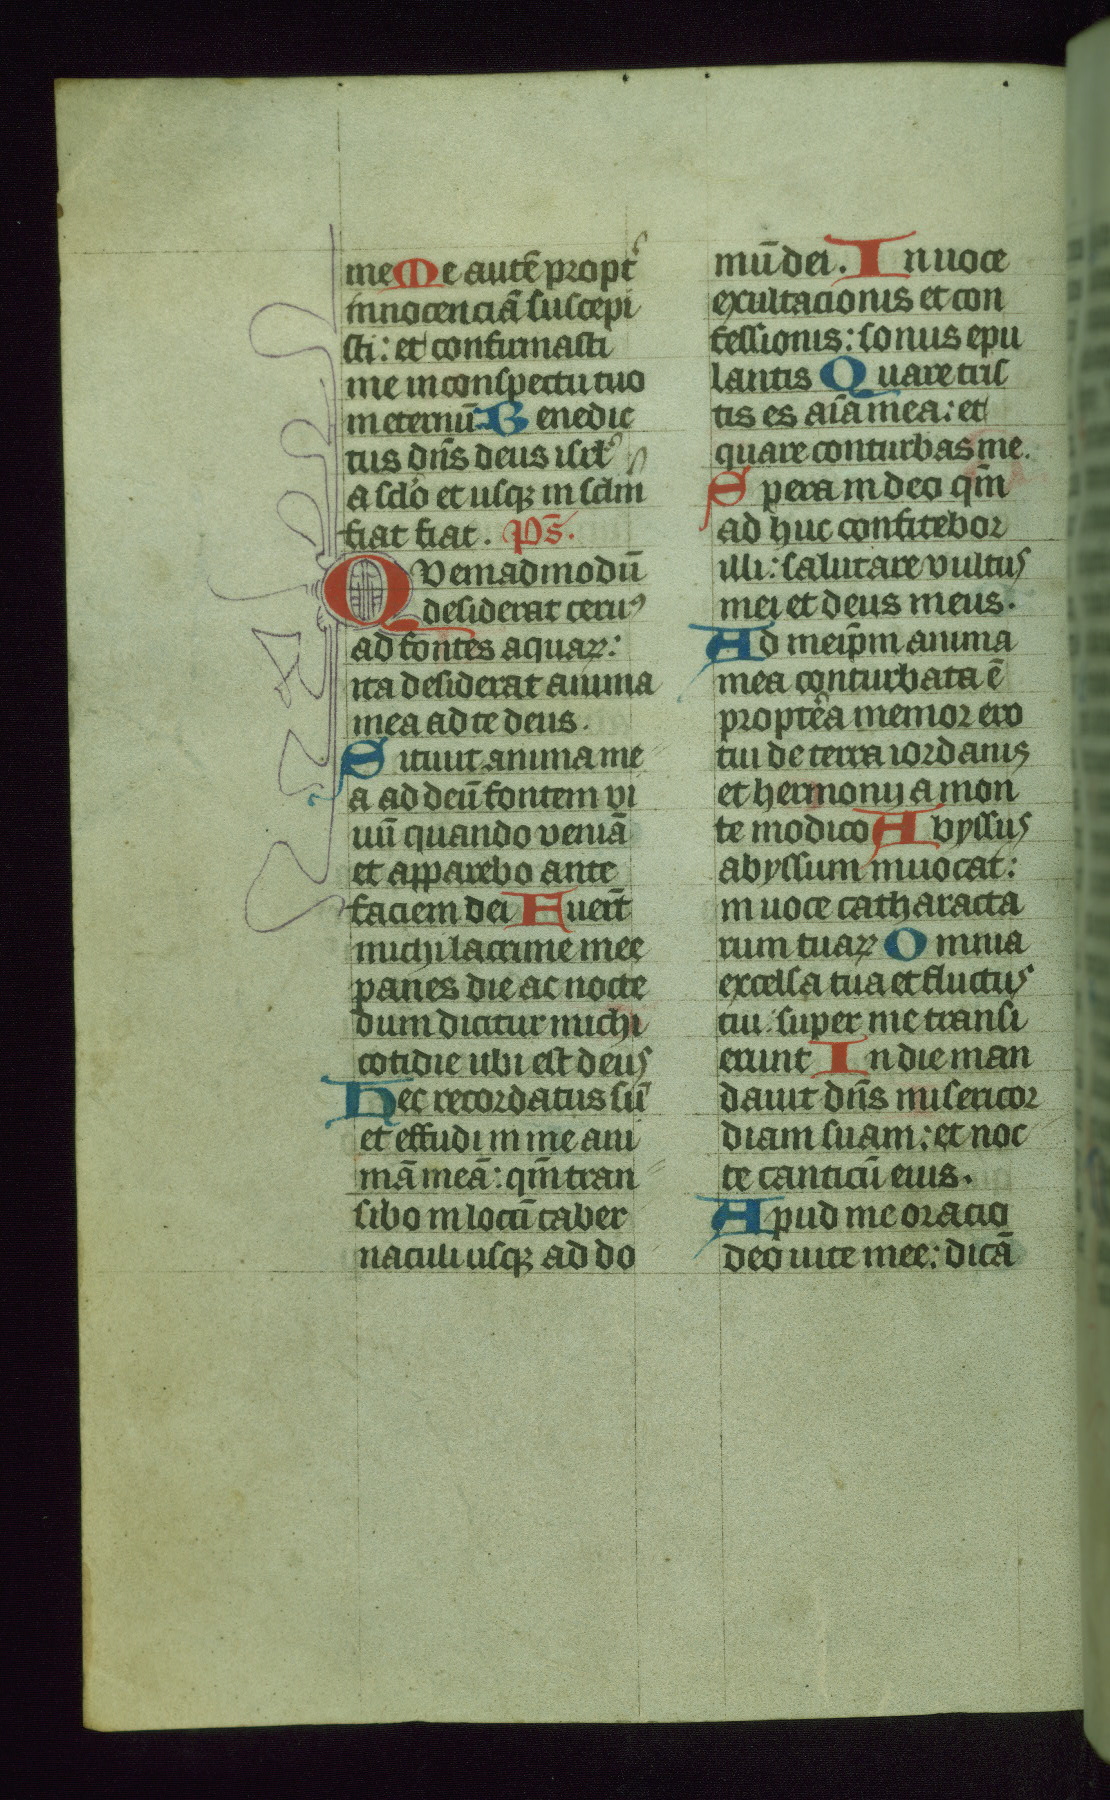 me Me autē propt᷑
innocenciā suscepi
sti: et confirmasti
me in conspectu tuo
in eternū Benedic
tus dn̄s deus isrl᷑
a scl̓o et usqꝫ in sclm
fiat fiat. Ps̄.
QVemadmodū
desiderat ceruꝰ
ad fontes aquaꝝ:
ita desiderat anima
mea ad te deus.
Sitiuit anima me
a ad deū fontem vi
uū quando veniā
et apparebo ante
faciem dei Fuer̄t
michi lacrime mee
panes die ac nocte
dum dicitur michi
cotidie ubi est deus
Hec recordatus sū
et effudi in me ani
mā meā: qm̄ tran
sibo in locū taber
naculi usqꝫ ad do
mū dei. In uoce
exultacionis et con
fessionis: sonus epu
lantis Quare tris
tis es aīa mea: et
quare conturbas me.
Spera in deo qm̄
ad huc confitebor
illi: salutare vultus
mei et deus meus.
Ad meip̄m anima
mea conturbata ē
propterea memor ero
tui de terra iordanis
et hermonij a mon
te modico Abyssus
abyssum inuocat:
in uoce catharacta
rum tuaꝝ Omnia
excelsa tua et fluctus
tui: super me transi
erunt In die man
dauit dn̄s misericor
diam suam: et noc
te canticū eius.
Apud me oracio
deo uite mee: dicā